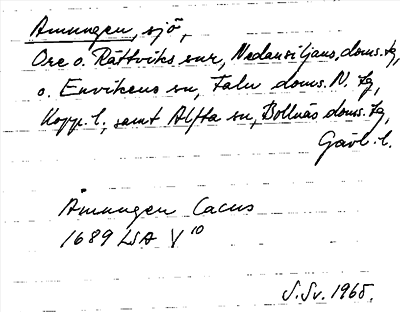 Amungen, sjö,
Ore o. Rättviks snr, Nedansiljans doms. tg,
o. Envikens sn, Falu doms. N. tg,
Kopp. l., samt Alfta sn, Bollnäs doms. tg,
Gävl. l.
Åmungen Cacus
1689 LSA V 10
S.Sv. 1965.